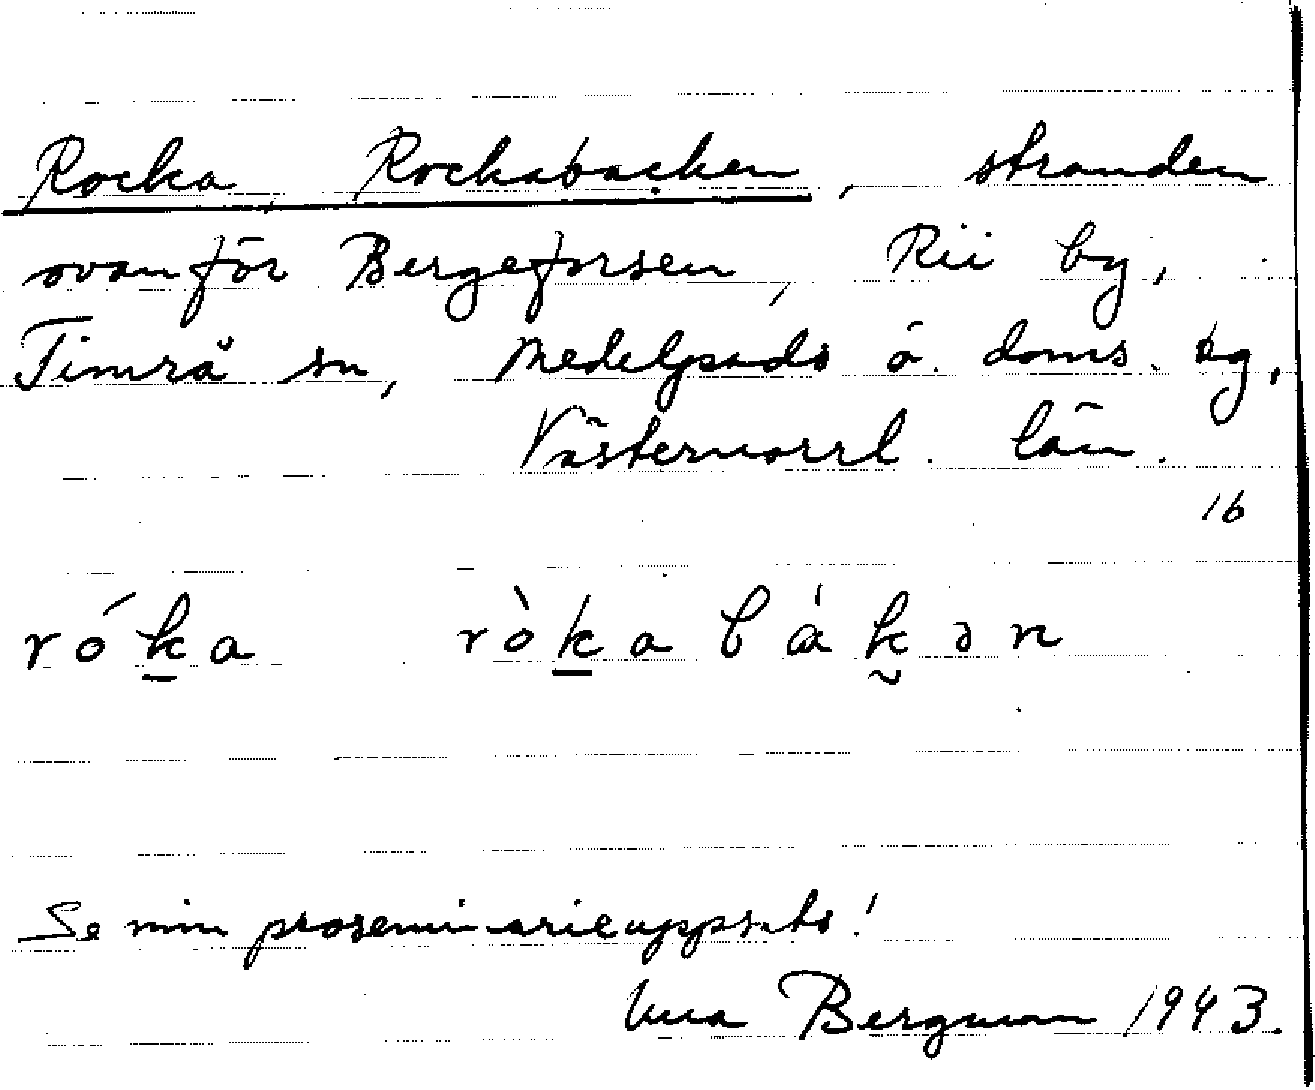 Rocka, Rockabacken, stranden
ovanför Bergeforsen, Rii by,
Timrå sn, Medelpads ö. doms. sg,
Västernorrl. län.
16
róka ròkabákən
Se min proseminarieuppsats!
Bergman 1943.